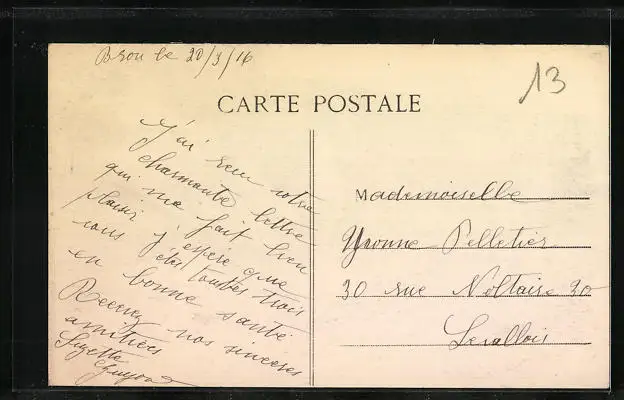 Bron le 20/3/16
13
CARTE POSTALE
J'ai reçu votre
charmante lettre
qui me fait bien
plaisir j'espère que
vous êtes toutes trois
en bonne santé
Recevez nos sincères
amitiés
Suzette
Guyon
Mademoiselle
Yvonne Pelletier
30 rue Voltaire 30
Levallois